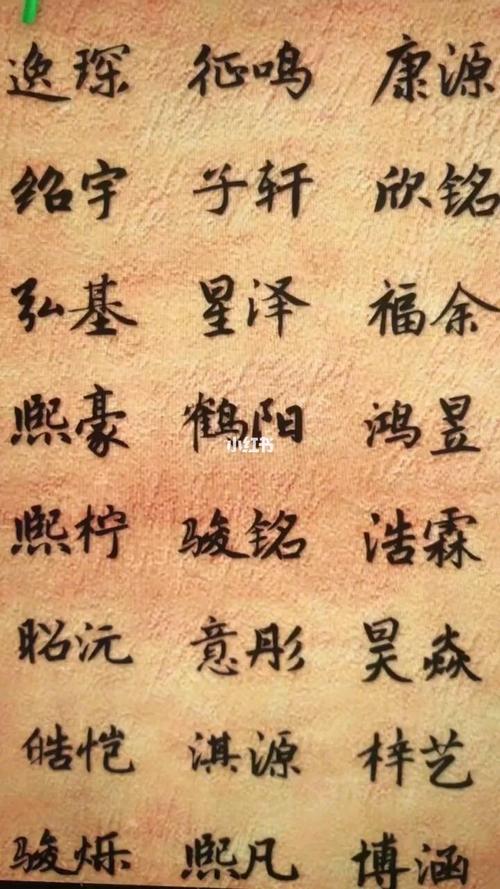 逸琛 征鸣 康源
绍宇 子轩 欣铭
弘基 星泽 福余
熙豪 鹤阳 鸿昱
小红书
熙柠 骏铭 浩霖
昭沅 意彤 昊焱
皓恺 淇源 梓艺
骏烁 熙凡 博涵